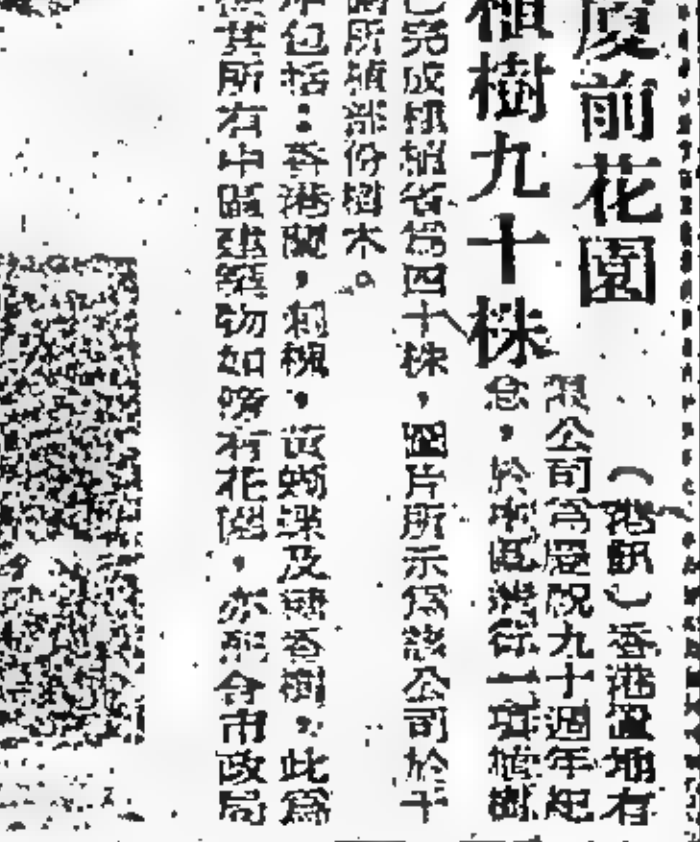 廈前花園
植樹九十株
（港訊）香港置地有
限公司為慶祝九十週年紀
念，於中區舉行一項植樹
已完成種植者為四十株，圖片所示為該公司於干
所植部份樹木。
包括：香港蘭，黃 及 香樹，此為
其所有中區建築物如 有花園，亦配合市政局